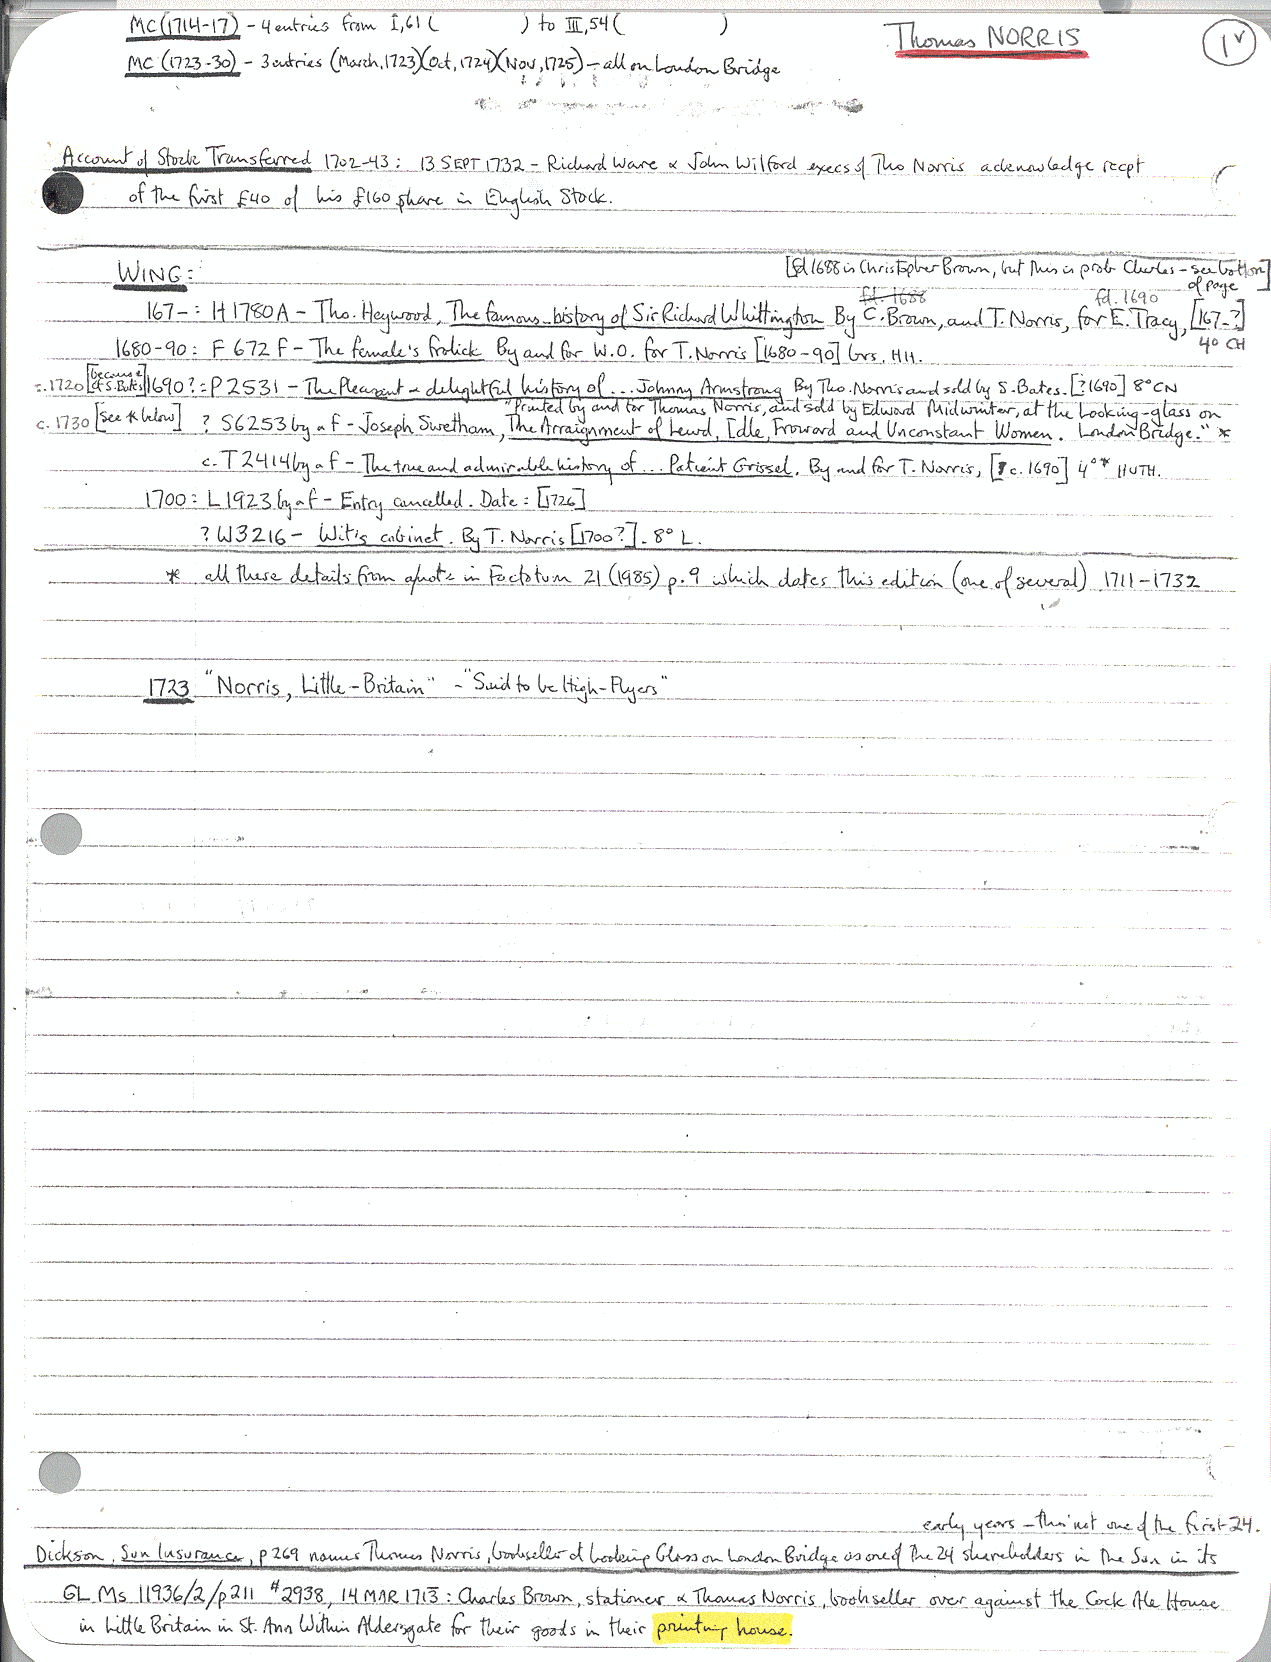 MC (1714-17) - 4 entries from I, 61 ( ) to III, 54 ( )
Thomas NORRIS
1v
MC (1723-30) - 3 entries (March, 1723)(Oct, 1724)(Nov, 1725) - all on London Bridge
Account of Stock Transferred 1702-43: 13 SEPT 1732 - Richard Ware & John Wilford execs of Tho Norris acknowledge recpt
of the first £40 of his £160 share in English Stock.
WING:
[fd 1688 is Christopher Brown, but this is prob Charles - see bottom
of page]
fd. 1688
fd. 1690
167-: H 1780A - Tho. Heywood, The famous history of Sir Richard Whittington By C. Brown, and T. Norris, for E. Tracy, [167-?]
4o CH
1680-90: F 672 F - The female's frolick By and for W.O. for T. Norris [1680-90] brs, HH.
c. 1720 [because of S. Bates] 1690?: P 2531 - The Pleasant & delightful history of ... Johnny Armstrong By Tho. Norris and sold by S. Bates. [?1690] 8° CN
"Printed by and for Thomas Norris, and sold by Edward Midwinter, at the Looking-glass on
c. 1730 [see * below] ? S6253 by a f - Joseph Swetnam, The Arraignment of Lewd, Idle, Froward and Unconstant Women. London Bridge." *
c. T2414 by a f - The true and admirable history of ... Patient Grissel. By and for T. Norris, [c. 1690] 4°* HUTH.
1700: L1923 by a f - Entry cancelled. Date: [1726]
? W3216 - Wit's cabinet. By T. Norris [1700?]. 8° L.
* all these details from a quote in Factotum 21 (1985) p. 9 which dates this edition (one of several) 1711-1732
1723 "Norris, Little-Britain" - "Said to be High-Flyers"
early years - tho' not one of the first 24.
Dickson, Sun Insurance, p 269 names Thomas Norris, bookseller at Looking Glass on London Bridge as one of the 24 shareholders in the Sun in its
GL Ms 11936/2/p211 #2938, 14 MAR 1713: Charles Brown, stationer & Thomas Norris, bookseller over against the Cock Ale House
in Little Britain in St. Ann Within Aldersgate for their goods in their printing house.